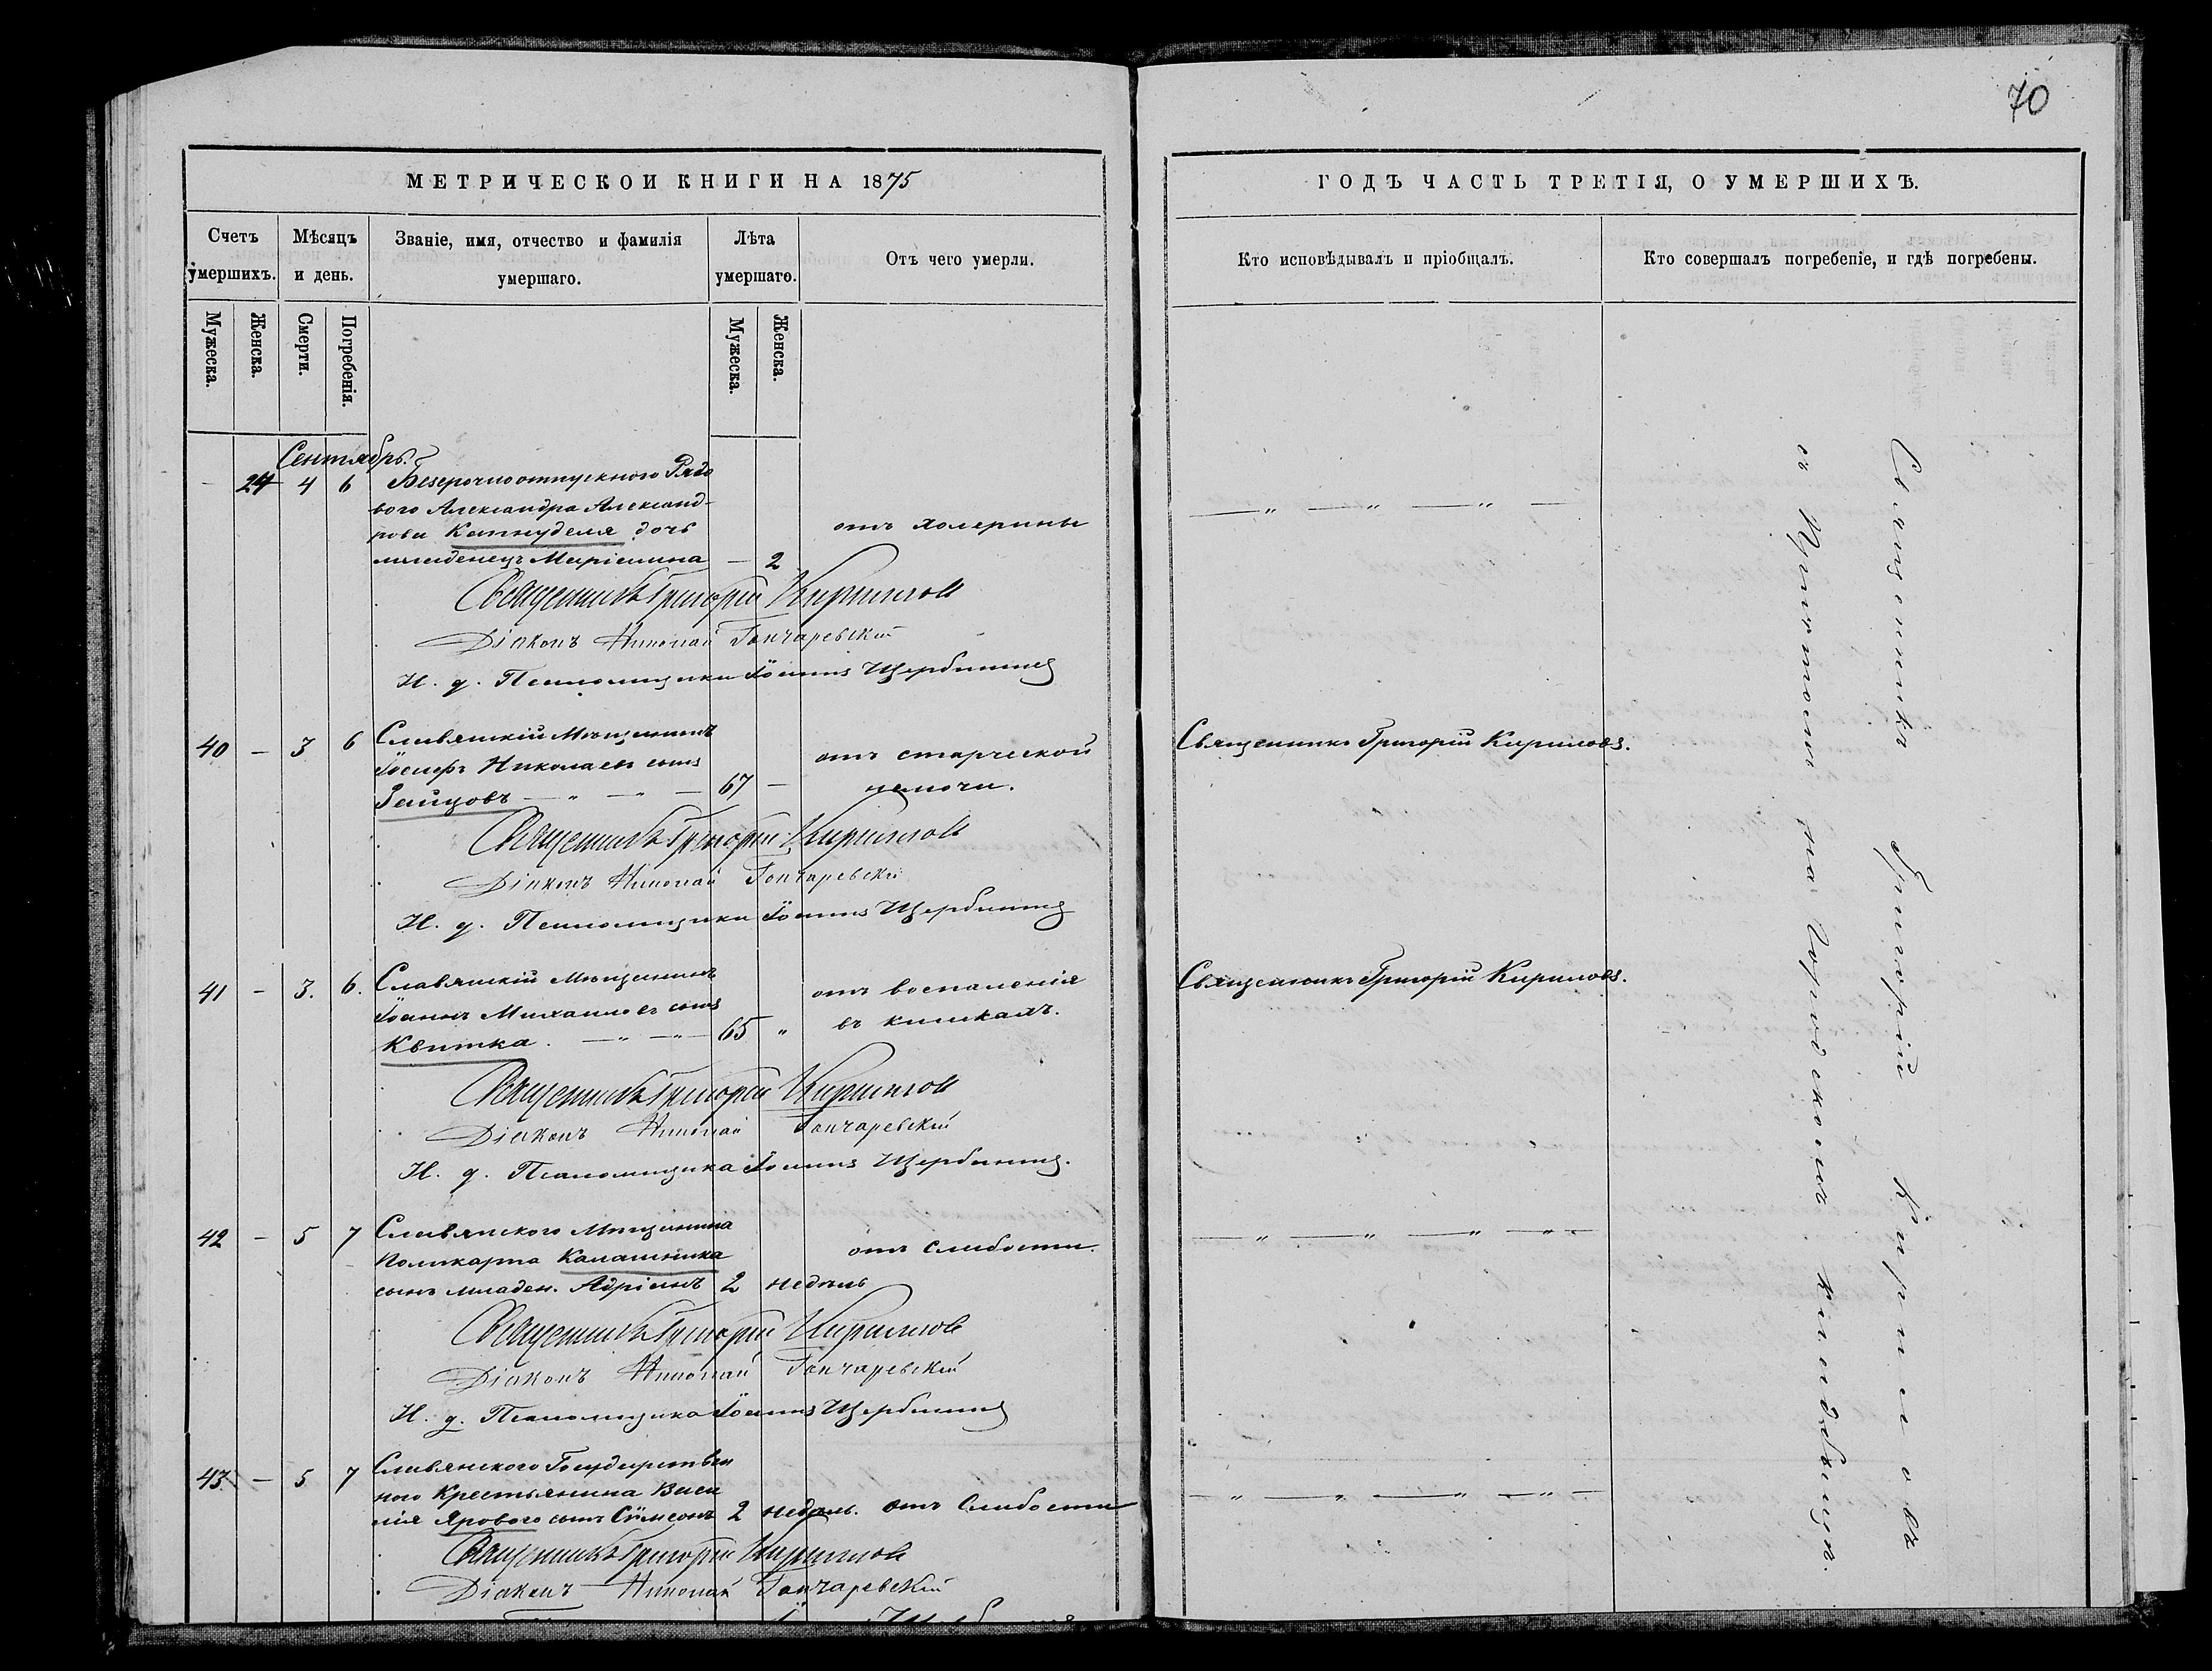 70
МЕТРИЧЕСКОЙ КНИГИ НА 1875
ГОДЪ ЧАСТЬ ТРЕТІЯ, О УМЕРШИХЪ.
Счетъ умершихъ.
Мѣсяцъ и день.
Званіе, имя, отчество и фамилія умершаго.
Лѣта умершаго.
Отъ чего умерли.
Кто исповѣдывалъ и пріобщалъ.
Кто совершалъ погребеніе, и гдѣ погребены.
Мужеска.
Женска.
Смерти.
Погребенія.
Мужеска.
Женска.
Сентябрь.
— 24 4 6 Безсрочноотпускного Рядо
вого Александра Александ-
рова дочь
отъ холерины
младенецъ Маріамна — 2
Священникъ Григорій Кириловъ
Діаконъ Николай Гончаревскій
И. д. Псаломщика Іоаннъ Щербининъ
40 — 3 6 Славянскій Мѣщанинъ
Іосифъ Николаевъ сынъ
Зайцовъ — " — " — 67 —
отъ старческой
немочи.
Священникъ Григорій Кириловъ.
Священникъ Григорій Кириловъ
Діаконъ Николай Гончаревскій
И. д. Псаломщика Іоаннъ Щербининъ
41 — 3. 6. Славянскій Мѣщанинъ
Іоаннъ Михаиловъ сынъ
Квитка. — " — " — 65 "
отъ воспаленія
въ кишкахъ.
Священникъ Григорій Кириловъ.
Священникъ Григорій Кириловъ
Діаконъ Николай Гончаревскій
И. д. Псаломщика Іоаннъ Щербининъ.
42 — 5 7 Славянского Мѣщанина
Поликарпа Калашника
сынъ младен. Адріанъ 2 недѣль
отъ слабости.
Священникъ Григорій Кириловъ
Діаконъ Николай Гончаревскій
И. д. Псаломщика Іоаннъ Щербининъ
43 — 5 7 Славянского Государствен
ного Крестьянина Васи
лія Ярового сынъ Сѵмеонъ 2 недѣль. отъ слабости
Священникъ Григорій Кириловъ
Діаконъ Николай Гончаревскій
Священникъ Григорій Кириловъ
съ Причтомъ на Городскомъ Кладбищѣ.